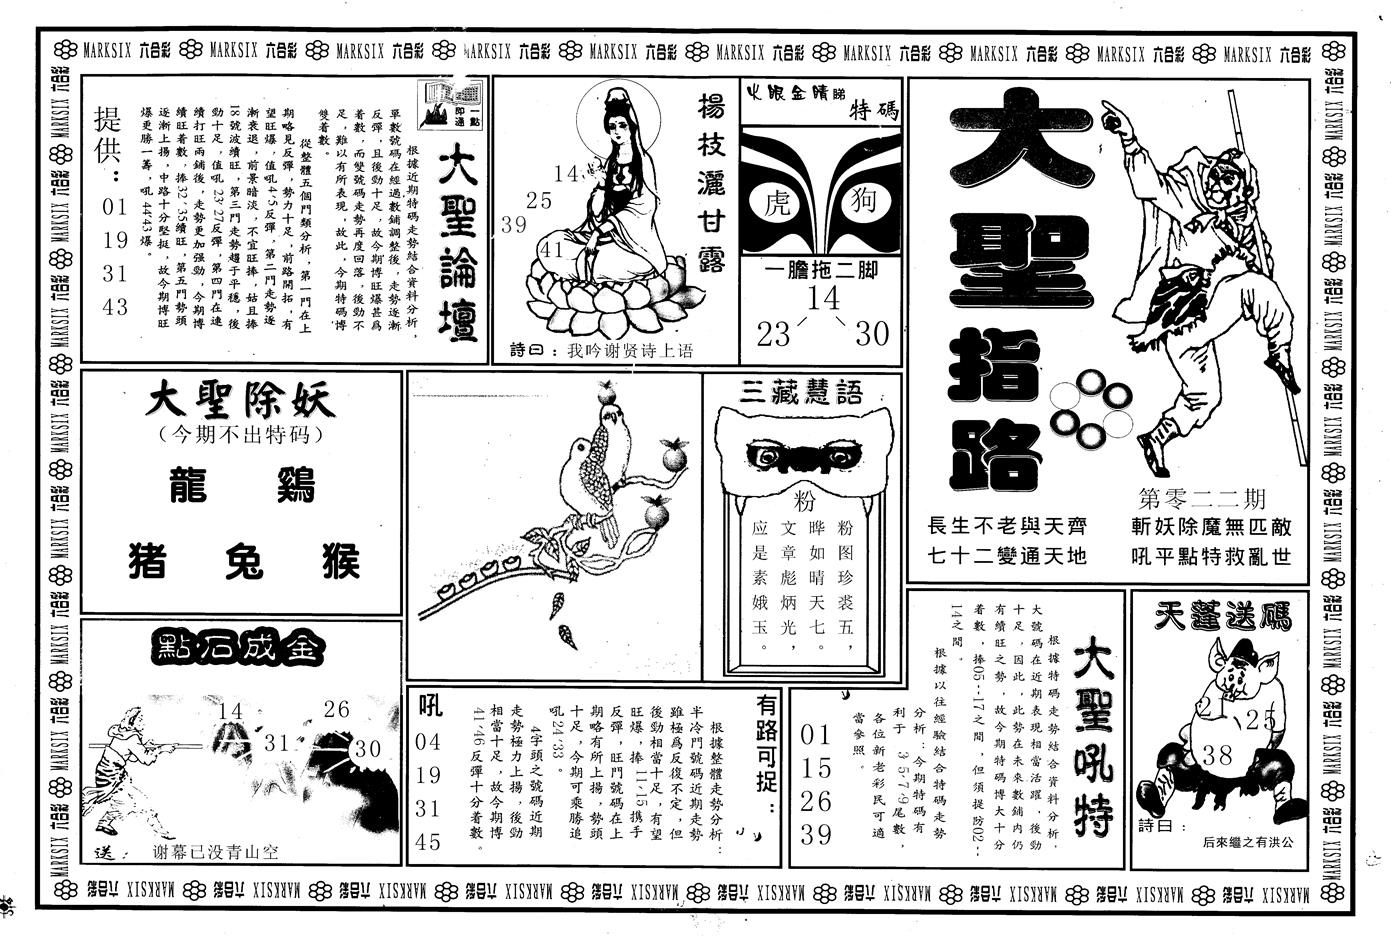 MARKSIX 六合彩 MARKSIX 六合彩 MARKSIX 六合彩 MARKSIX 六合彩 MARKSIX 六合彩 MARKSIX 六合彩 MARKSIX 六合彩 MARKSIX 六合彩 MARKSIX 六合彩 MARKSIX 六合彩
大聖指路
第零二二期
長生不老與天齊
七十二變通天地
斬妖除魔無匹敵
吼平點特救亂世
火眼金睛睇
特碼
虎 狗
一膽拖二脚
14
23 30
楊枝灑甘露
14
25
39
41
詩曰：我吟谢贤诗上语
一點即通
大聖論壇
根據近期特碼走勢結合資料分析，
單數號碼在經過數鋪調整後，走勢逐漸
反彈，且後勁十足，故今期博旺爆甚爲
着數，而雙號碼走勢再度回落，後勁不
足，難以有所表現，故此，今期特碼博
雙着數。
從整體五個門類分析，第一門在上
期略見反彈，勢力十足，前路開拓，有
望旺爆，值吼4·5反彈，第二門走勢逐
漸衰退，前景暗淡，不宜旺捧，姑且捧
18號波續旺，第三門走勢趨于平穩，後
勁十足，值吼23·27反彈，第四門在連
續打旺兩鋪後，走勢更加强勁，今期博
續旺着數，捧32·35續旺，第五門勢頭
逐漸上揚，中路十分堅挺，故今期博旺
爆更勝一籌，吼44·43爆。
提供：
01
19
31
43
大聖除妖
（今期不出特码）
龍 鷄
猪 兔 猴
三藏慧語
粉
粉图珍裘五，
晔如晴天七。
文章彪炳光，
应是素娥玉。
點石成金
14
26
31
30
送：谢幕已没青山空
有路可捉：
根據整體走勢分析：
半冷門號碼近期走勢
雖極爲反復不定，但
後勁相當十足，有望
旺爆，捧11·15携手
反彈，旺門號碼在上
期略有所上揚，勢頭
十足，今期可乘勝追
吼24·33。
4字頭之號碼近期
走勢極力上揚，後勁
相當十足，故今期博
41·46反彈十分着數。
吼
04
19
31
45
大聖吼特
根據特碼走勢結合資料分析，
大號碼在近期表現相當活躍，後勁
十足，因此，此勢在未來數鋪内仍
有續旺之勢，故今期特碼博大十分
着數，捧05--17之間，但須提防02--
14之間。
根據以往經驗結合特碼走勢
分析：今期特碼有
利于3·5·7·9尾數，
各位新老彩民可適
當參照。
01
15
26
39
天蓬送碼
25
38
詩曰：
后來繼之有洪公
MARKSIX 六合彩 MARKSIX 六合彩 MARKSIX 六合彩 MARKSIX 六合彩 MARKSIX 六合彩 MARKSIX 六合彩 MARKSIX 六合彩 MARKSIX 六合彩 MARKSIX 六合彩 MARKSIX 六合彩